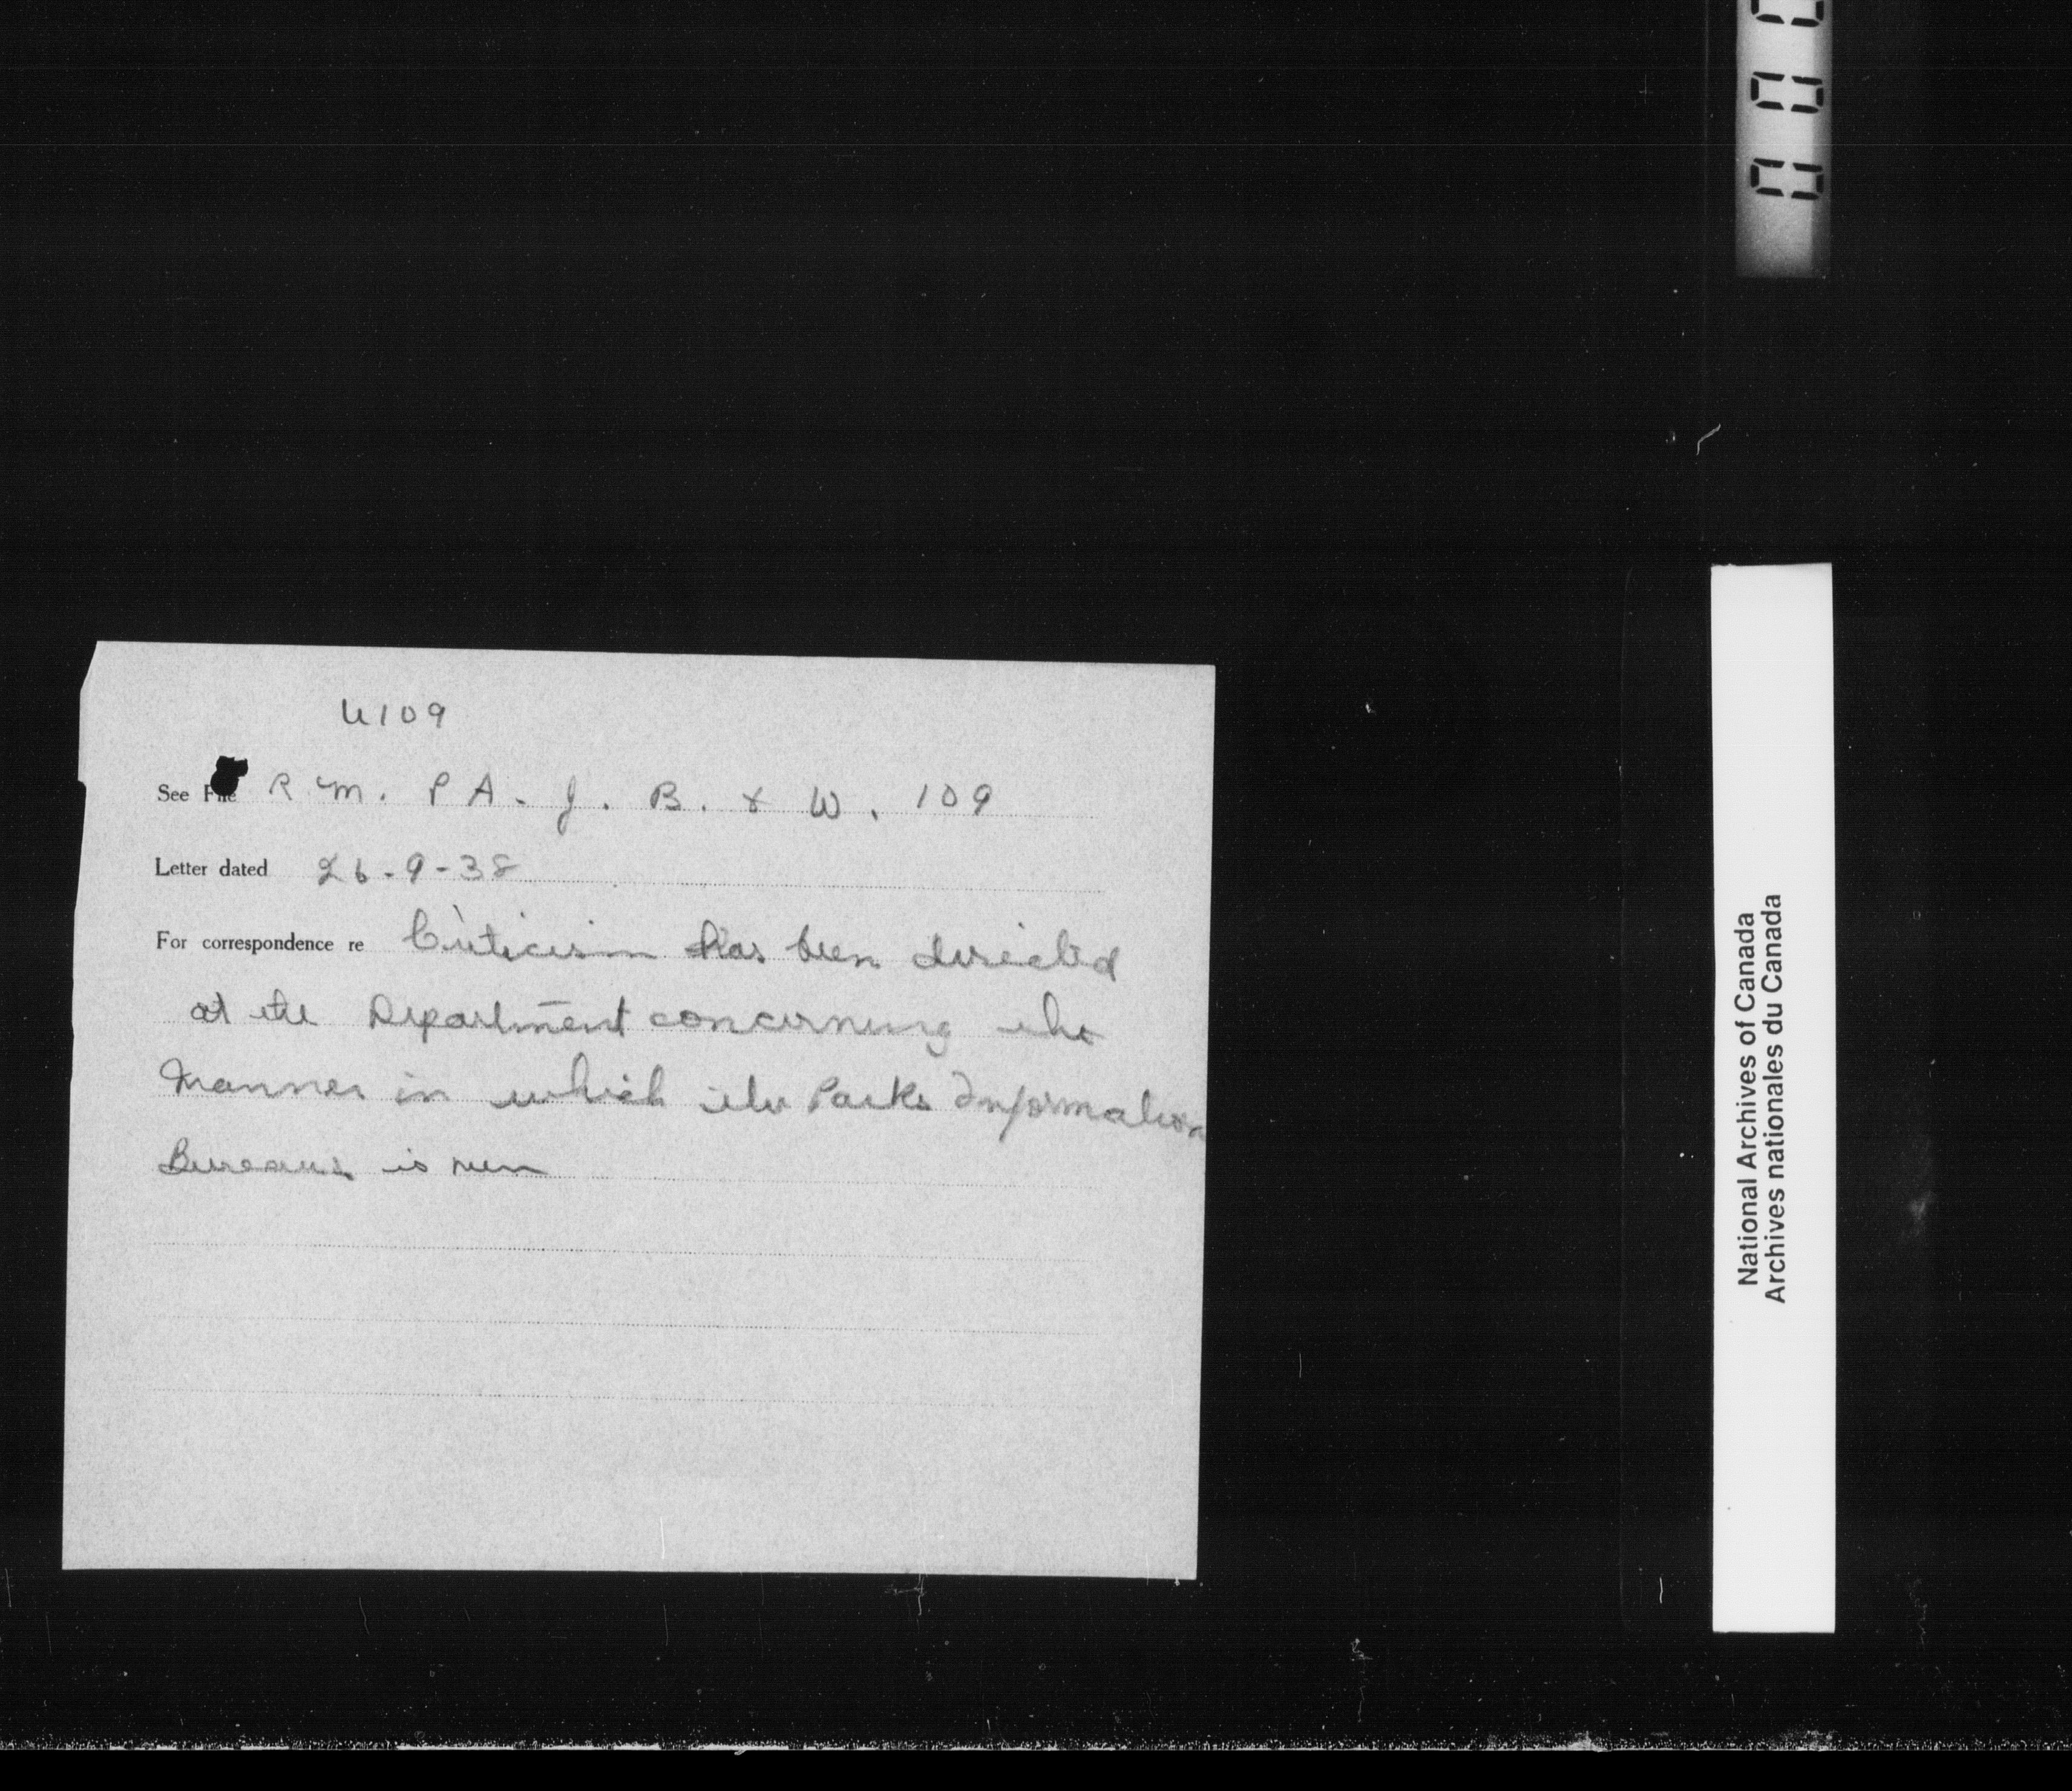 U109
See File R M. P A. J. B. & W. 109
Letter dated 26-9-38
For correspondence re Criticism has been directed
at the Department concerning the
Manner in which the Parks Information
Bureaus is run
National Archives of Canada
Archives nationales du Canada